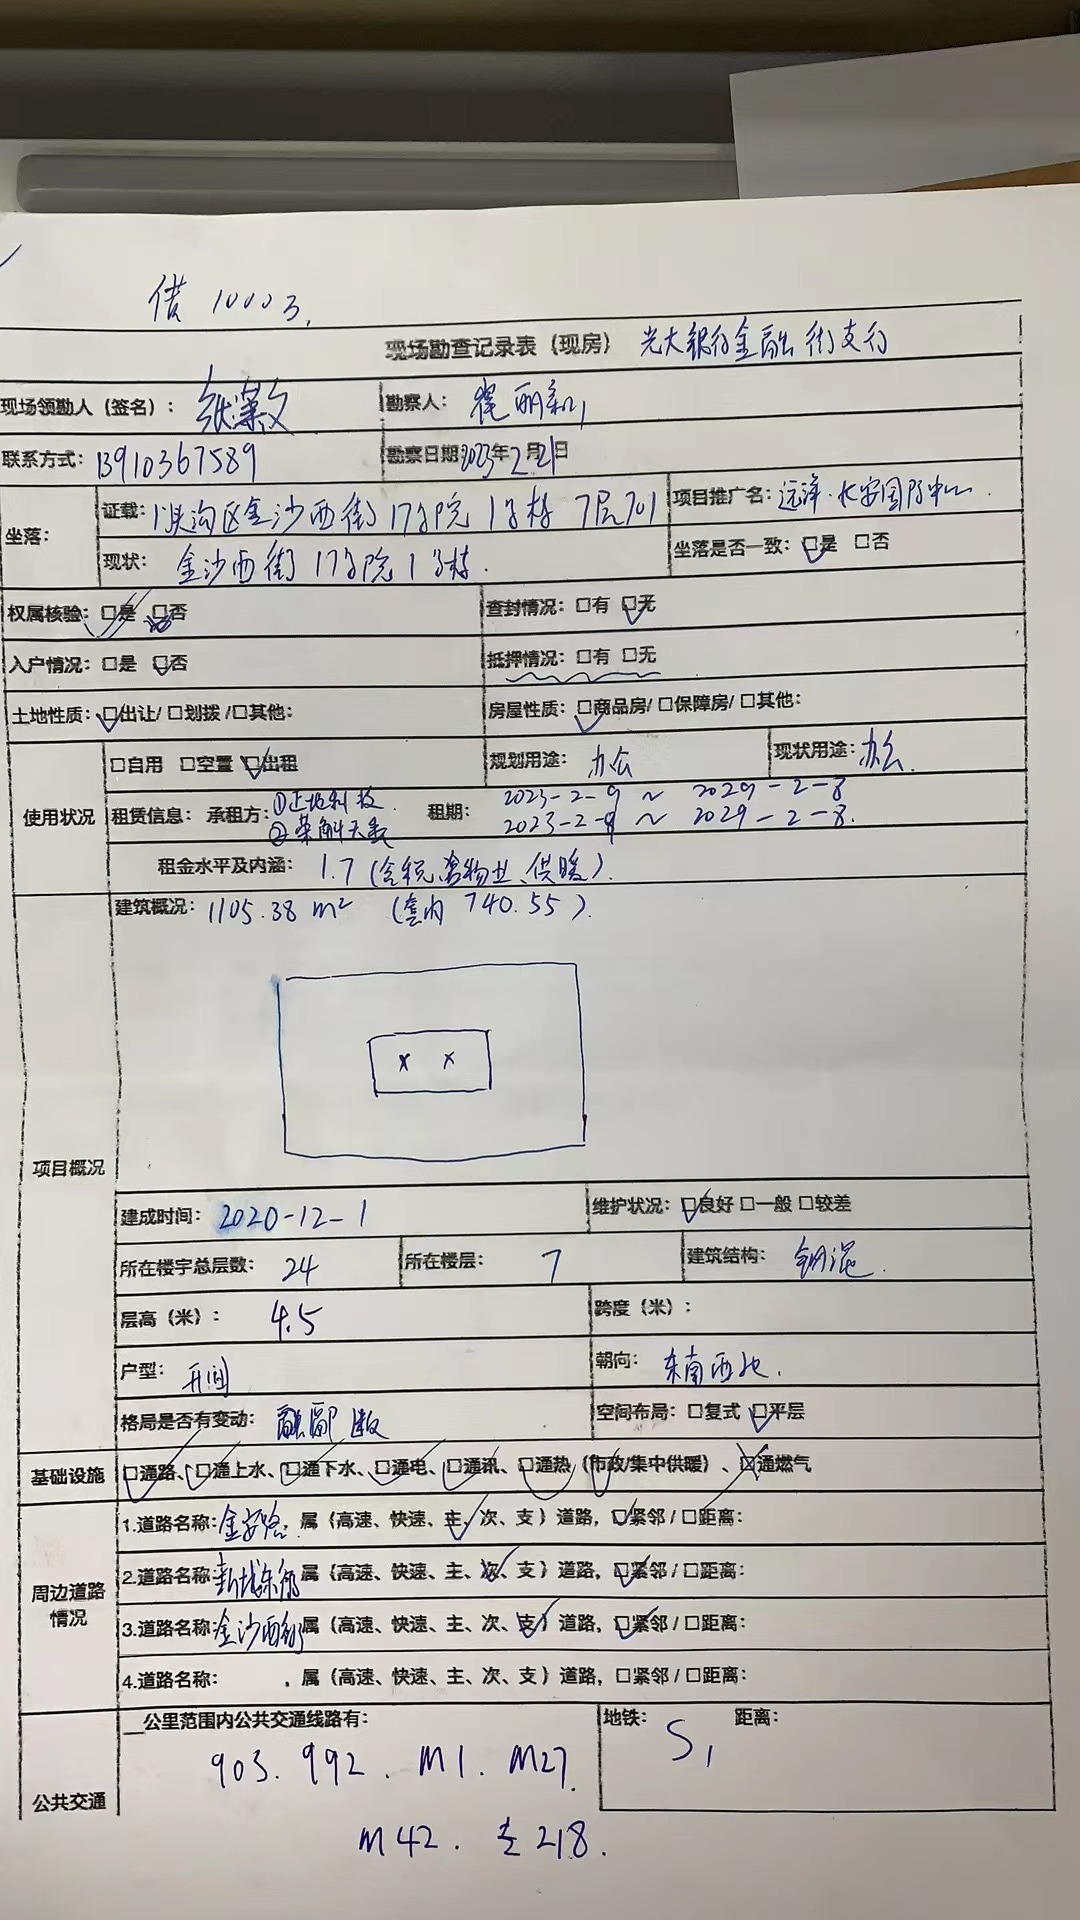 借 10003.
现场勘查记录表（现房） 光大银行金融街支行
现场领勘人（签名）： 张 文 勘察人： 丽
联系方式：13910367589 勘察日期：2023年2月21日
坐落： 证载：门头沟区金沙西街17号院1号楼7层701 项目推广名：远洋·长安国际中心
现状： 金沙西街17号院1号楼. 坐落是否一致：☑是 □否
权属核验：☑是 □否 查封情况：□有 ☑无
入户情况：□是 ☑否 抵押情况：□有 □无
土地性质：☑出让/□划拨/□其他： 房屋性质：☑商品房/□保障房/□其他：
使用状况 □自用 □空置 ☑出租 规划用途： 办公 现状用途：办公.
租赁信息： 承租方：① 科技. 租期： 2023-2-9 ~ 2029-2-8
② 2023-2-9 ~ 2029-2-8.
租金水平及内涵： 1.7（含税、含物业、供暖）.
项目概况 建筑概况：1105.38 m² （套内 740.55）.
x x
建成时间： 2020-12-1 维护状况：☑良好 □一般 □较差
所在楼宇总层数： 24 所在楼层： 7 建筑结构： 钢混.
层高（米）： 4.5 跨度（米）：
户型： 开间 朝向： 东南西北.
格局是否有变动： 空间布局：□复式 ☑平层
基础设施 ☑通路、☑通上水、☑通下水、☑通电、☑通讯、☑通热（市政/集中供暖）、☒通燃气
周边道路情况 1.道路名称：金安路，属（高速、快速、主✓、次、支）道路，☑紧邻/□距离：
2.道路名称：新城东街属（高速、快速、主、次✓、支）道路，☑紧邻/□距离：
3.道路名称：金沙西街属（高速、快速、主、次、支✓）道路，☑紧邻/□距离：
4.道路名称： ，属（高速、快速、主、次、支）道路，□紧邻/□距离：
公共交通 __公里范围内公共交通线路有： 地铁： S1 距离：
903. 992. M1. M27.
M42. 专218.